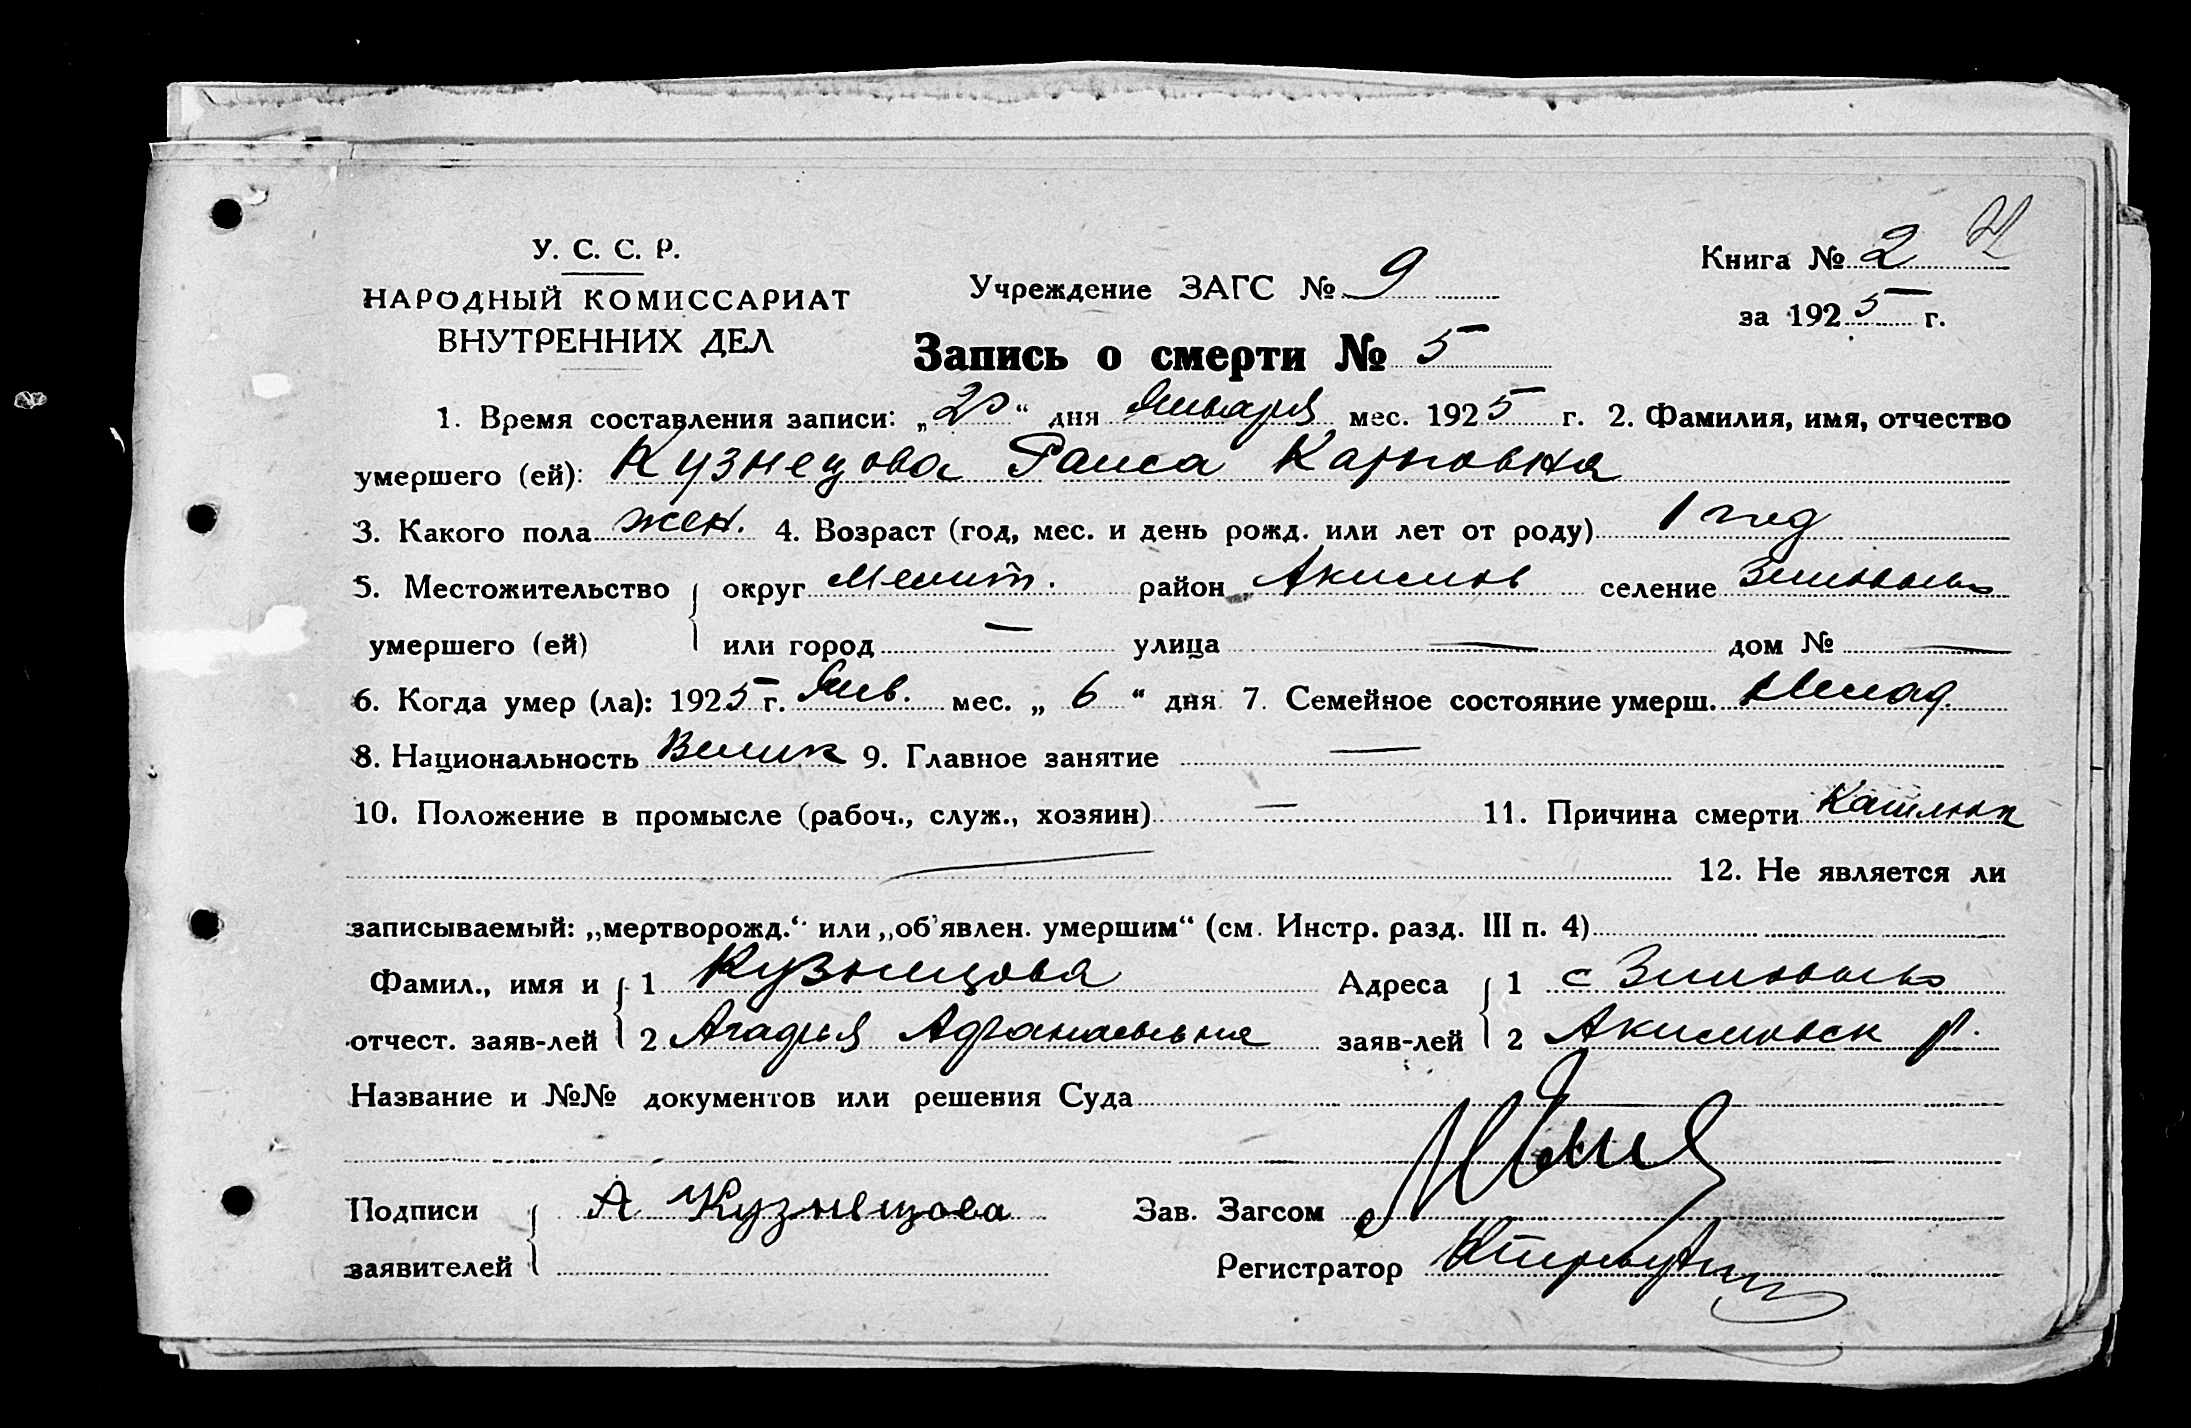 У. С. С. Р.
НАРОДНЫЙ КОМИССАРИАТ
ВНУТРЕННИХ ДЕЛ
Учреждение ЗАГС № 9
Книга № 2
за 1925 г.
Запись о смерти № 5
1. Время составления записи: „20“ дня Января мес. 1925 г. 2. Фамилия, имя, отчество
умершего (ей): Кузнецова Раиса Карповна
3. Какого пола жен. 4. Возраст (год, мес. и день рожд. или лет от роду) 1 год
5. Местожительство округ Мелит. район Акимов селение
умершего (ей) или город — улица — дом № —
6. Когда умер (ла): 1925 г. Янв. мес. „6“ дня 7. Семейное состояние умерш. Млад.
8. Национальность Велик 9. Главное занятие —
10. Положение в промысле (рабоч., служ., хозяин) — 11. Причина смерти Кашлюк
12. Не является ли
записываемый: „мертворожд.“ или „об'явлен. умершим“ (см. Инстр. разд. III п. 4)
Фамил., имя и 1 Кузнецова Адреса 1 с
отчест. заяв-лей 2 Агафья Афанасьевна заяв-лей 2 Акимовск р.
Название и №№ документов или решения Суда
Подписи А Кузнецова Зав. Загсом
заявителей Регистратор